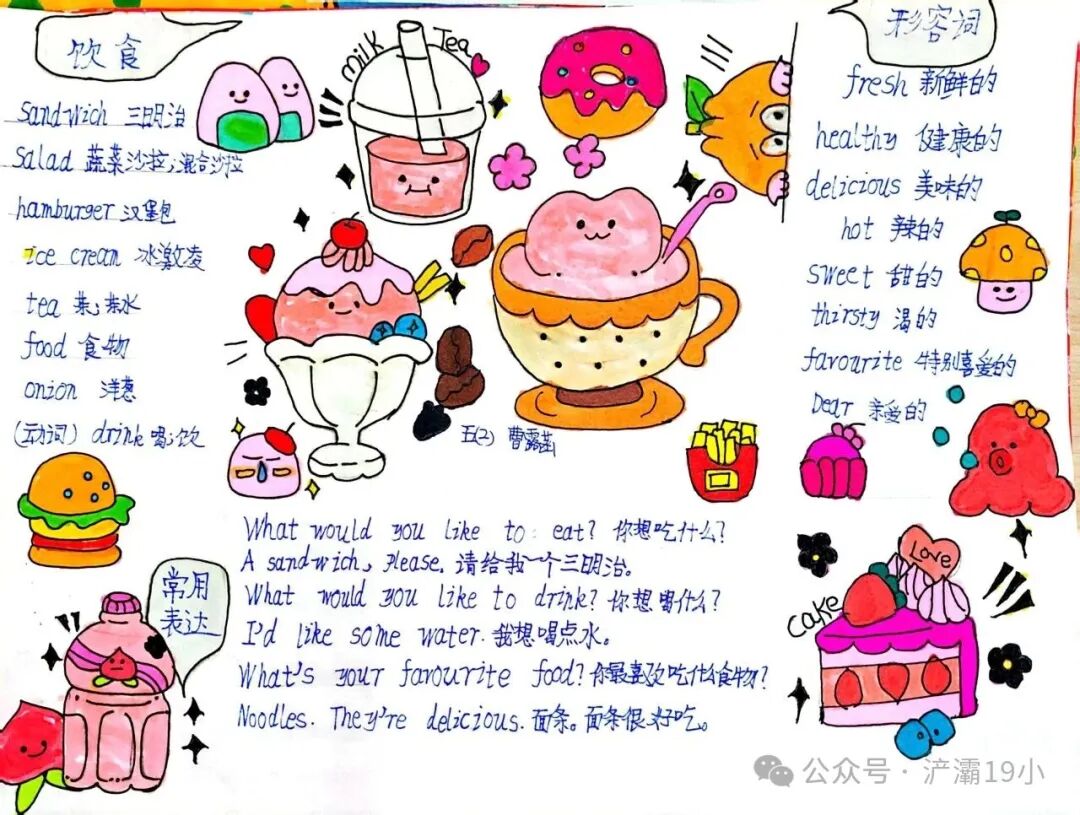 饮食
sandwich 三明治
salad 蔬菜沙拉;混合沙拉
hamburger 汉堡包
ice cream 冰激凌
tea 茶;茶水
food 食物
onion 洋葱
(动词) drink 喝;饮
milk Tea
形容词
fresh 新鲜的
healthy 健康的
delicious 美味的
hot 辣的
sweet 甜的
thirsty 渴的
favourite 特别喜爱的
Dear 亲爱的
五(2) 曹露茜
常用
表达
What would you like to: eat? 你想吃什么?
A sandwich, Please. 请给我一个三明治。
What would you like to drink? 你想喝什么?
I'd like some water. 我想喝点水。
What's your favourite food? 你最喜欢吃什么食物?
Noodles. They're delicious. 面条。面条很好吃。
Love
cake
公众号 · 浐灞19小